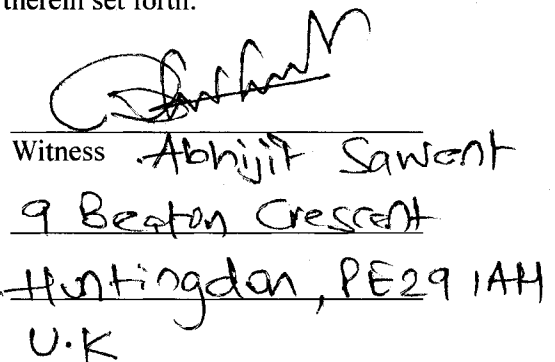 therein set forth.
Witness Abhijit Sawant
9 Beaton Crescent
Huntingdon, PE29 1AH
U.K